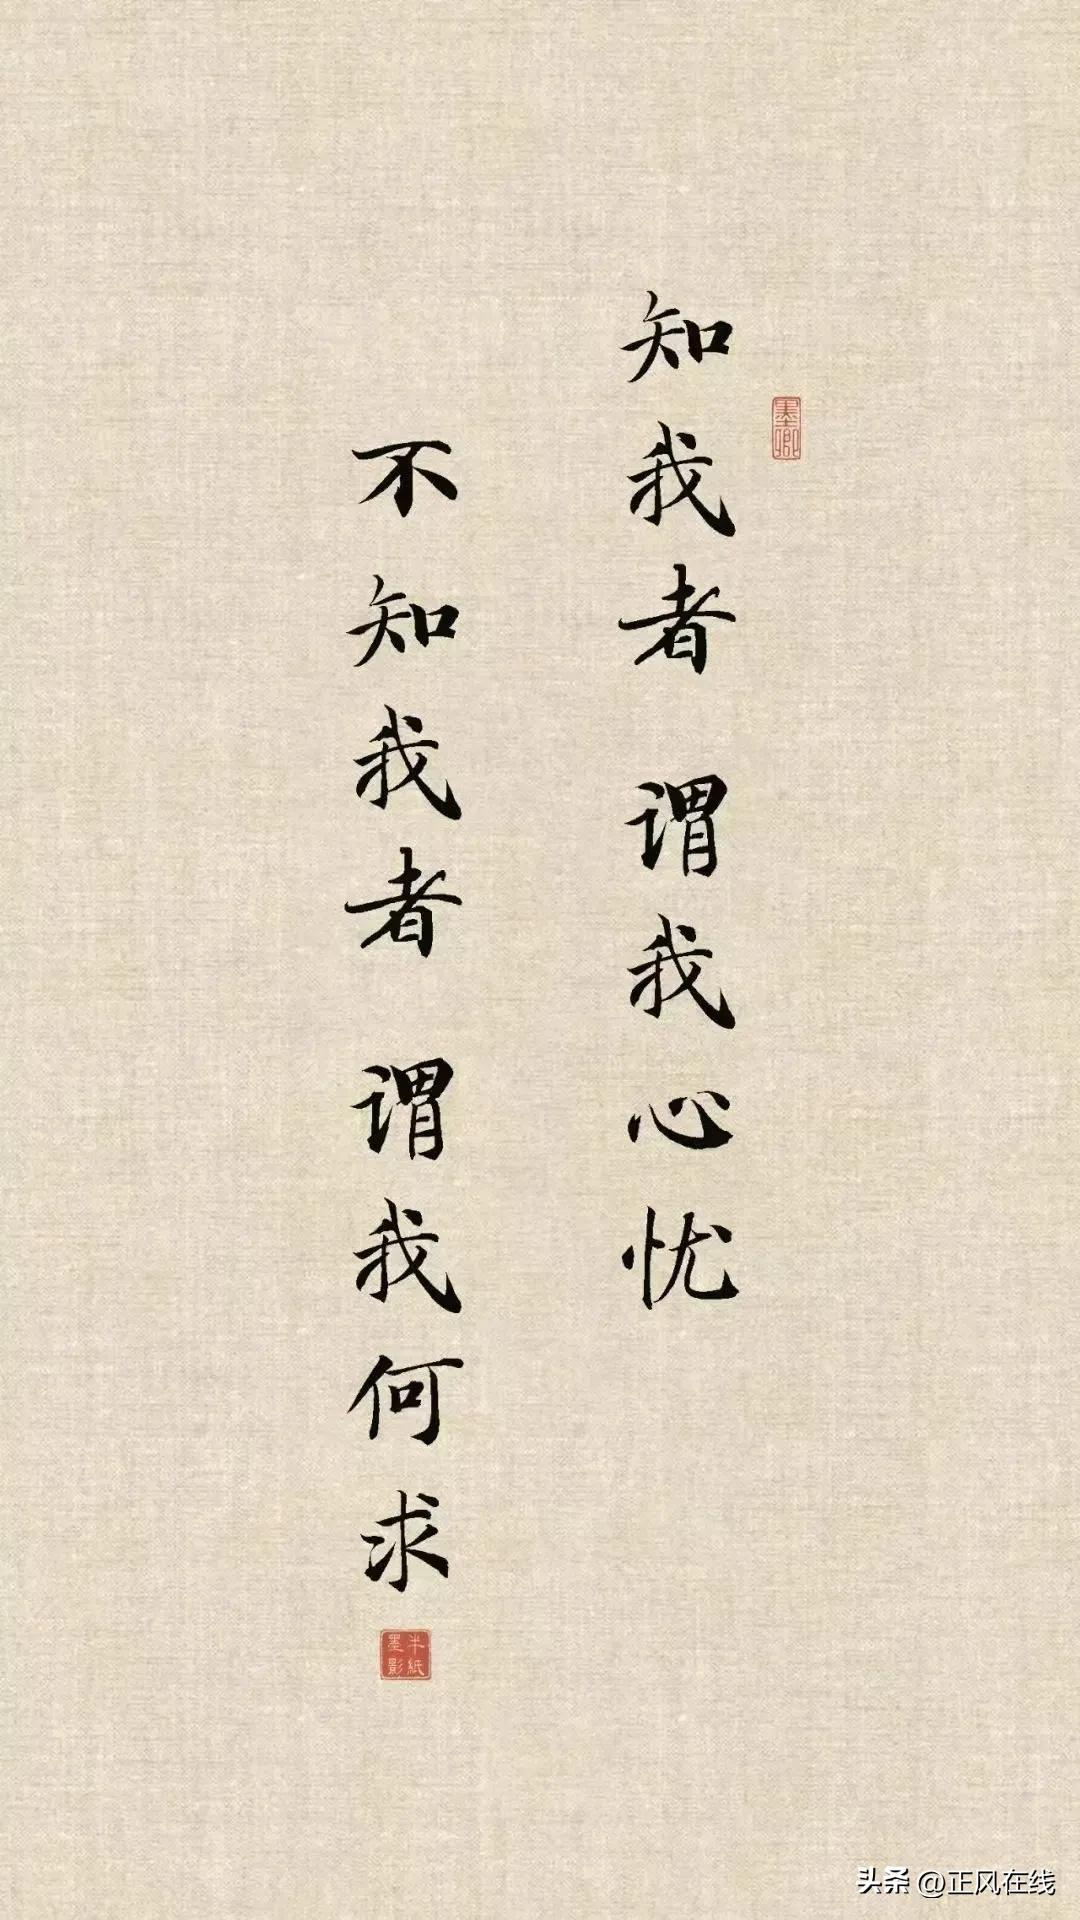 知我者 谓我心忧
不知我者 谓我何求
墨卿
半纸墨影
头条 @正风在线